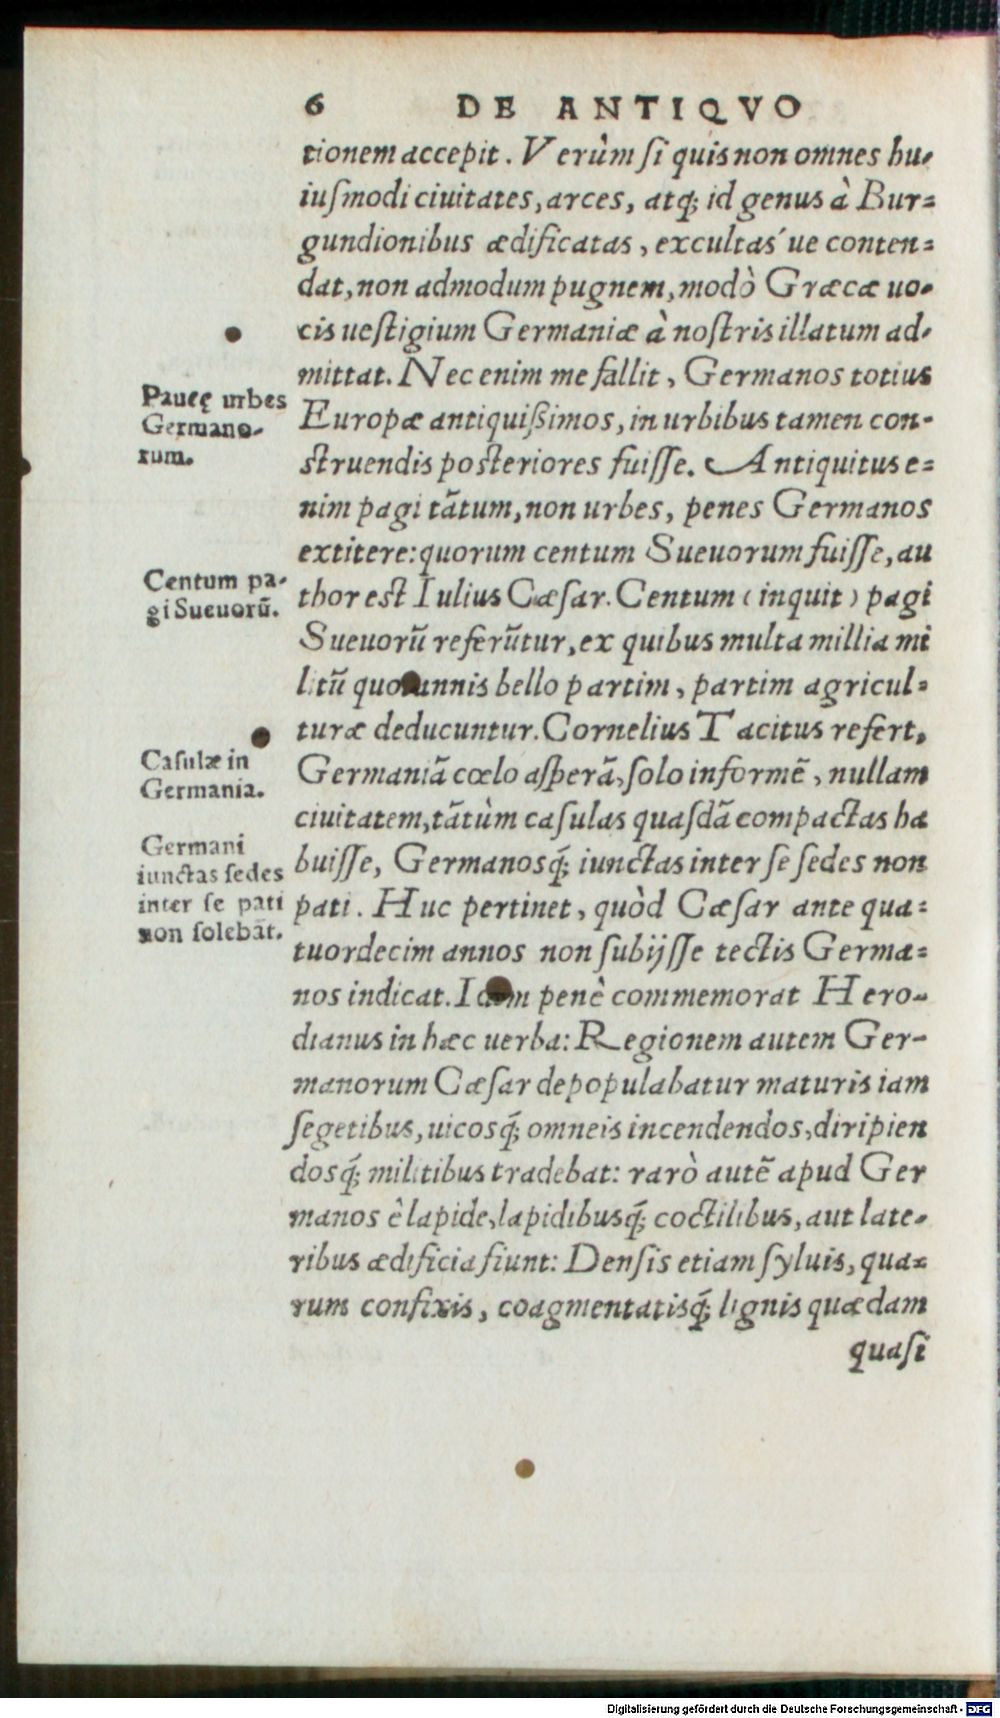 6 DE ANTIQVO
tionem accepit. Verùm ſi quis non omnes hu-
iuſmodi ciuitates, arces, atq; id genus à Bur-
gundionibus ædificatas, excultas´ue conten-
dat, non admodum pugnem, modò Græcæ uo-
cis ueſtigium Germaniæ à noſtris illatum ad-
mittat. Nec enim me fallit, Germanos totius
Europæ antiquißimos, in urbibus tamen con-
ſtruendis poſteriores fuiſſe. Antiquitus e-
nim pagi tãtum, non urbes, penes Germanos
extitere: quorum centum Sueuorum fuiſſe, au
thor est Iulius Cæſar. Centum (inquit) pagi
Sueuorũ referũtur, ex quibus multa millia mi
litũ quotannis bello partim, partim agricul-
turæ deducuntur. Cornelius Tacitus refert,
Germaniã cœlo aſperã, ſolo informẽ, nullam
ciuitatem, tãtùm caſulas quaſdã compactas ha
buiſſe, Germanosq́; iunctas inter ſe ſedes non
pati. Huc pertinet, quòd Cæſar ante qua-
tuordecim annos non ſubijſſe tectis Germa-
nos indicat. Idem penè commemorat Hero-
dianus in hæc uerba: Regionem autem Ger-
manorum Cæſar depopulabatur maturis iam
ſegetibus, uicosq́; omneis incendendos, diripien
dosq́; militibus tradebat: rarò autẽ apud Ger
manos è lapide, lapidibusq́; coctilibus, aut late-
ribus ædificia fiunt: Denſis etiam ſyluis, qua-
rum confixis, coagmentatisq́; lignis quædam
quaſi
Paucę urbes
Germano-
rum.
Centum pa-
gi Sueuorũ.
Caſulæ in
Germania.
Germani
iunctas ſedes
inter ſe pati
non ſolebãt.
Digitalisierung gefördert durch die Deutsche Forschungsgemeinschaft - DFG